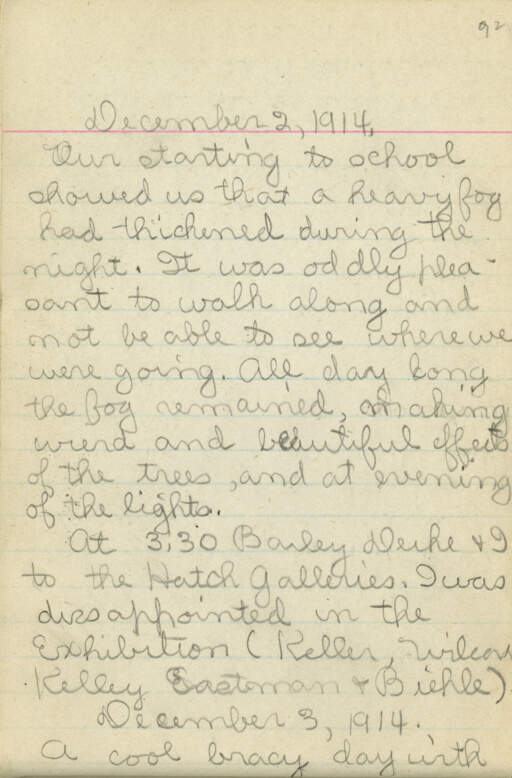 92
December 2, 1914.
Our starting to school
showed us that a heavy fog
had thickened during the
night. It was oddly plea-
sant to walk along and
not be able to see where we
were going. All day long
the fog remained, making
wierd and beautiful effects
of the trees, and at evening
of the lights.
At 3.30 Bailey Derke & I
to the Hatch Galleries. I was
dissappointed in the
Exhibition (Keller, Wilcox
Kelley Eastman & Biehle).
December 3, 1914.
A cool bracy day with